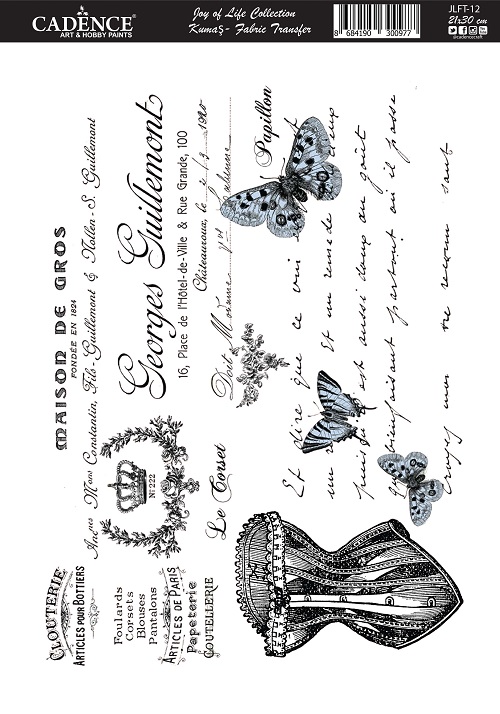 CADENCE
ART & HOBBY PAINTS
Joy of Life Collection
Kumaş- Fabric Transfer
8 684190 300977
JLFT-12
21x30 cm
@cadencecraft
MAISON DE GROS
FONDÉE EN 1824
Ancnes Mons Constantin, Fils-Guillemont & Nollen-S. Guillemont
Georges Guillemont
16, Place de l'Hôtel-de-Ville & Rue Grande, 100
Châteauroux, le 2/9 1920
Doit M
Papillon
Nº 222
Le Corset
Et dire que ce vin
Et un remede
est aussi doux au goût
bienfaisant partout où il passe
CLOUTERIE
ARTICLES POUR BOTTIERS
Foulards
Corsets
Blouses
Pantalons
ARTICLES DE PARIS
Papeterie
COUTELLERIE